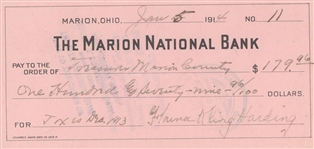 MARION, OHIO, Jan 5 1914 NO. 11
THE MARION NATIONAL BANK
PAY TO THE
ORDER OF Treasurer Marion County $179.96
One Hundred & Seventy-nine 96/100 DOLLARS.
FOR Taxes Dec. 1913 Florence Kling Harding